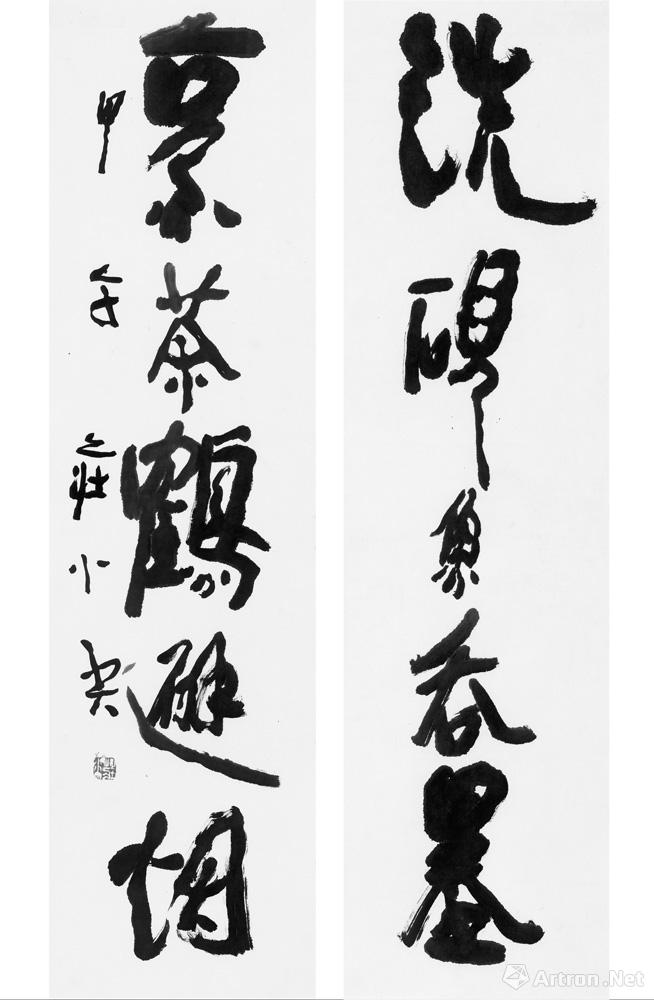 洗砚鱼吞墨
烹茶鹤避烟
甲午之壮小奕
Artron.Net